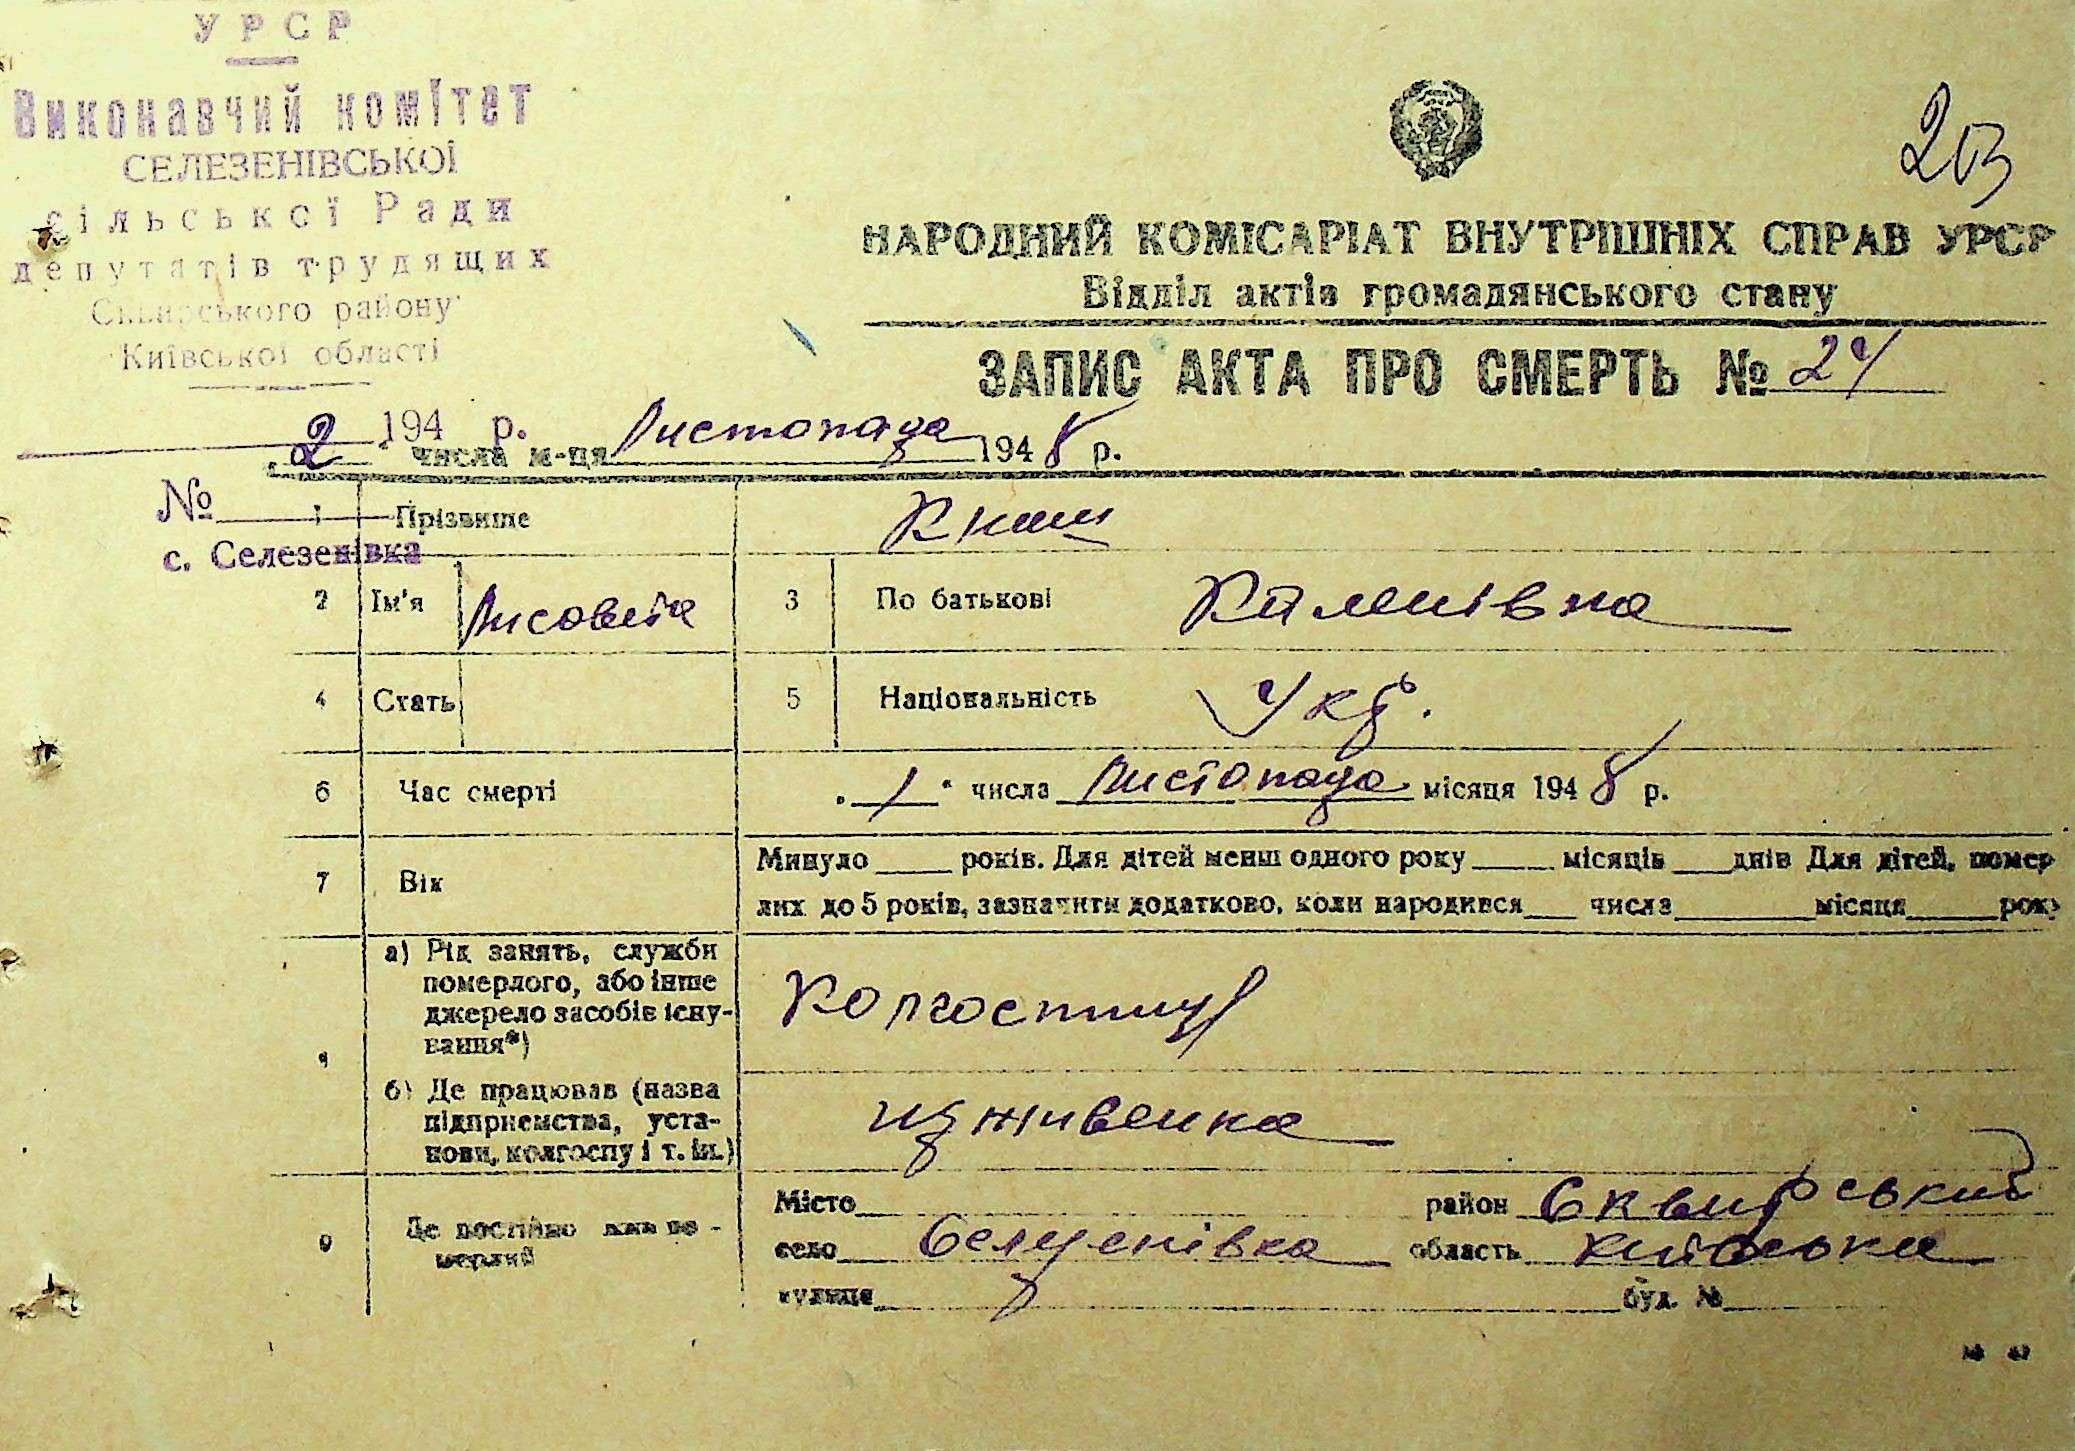 УРСР
Виконавчий комітет
СЕЛЕЗЕНІВСЬКОЇ
сільської Ради
депутатів трудящих
Сквирського району
Київської області
194 р.
№
с. Селезенівка
203
НАРОДНИЙ КОМІСАРІАТ ВНУТРІШНІХ СПРАВ УРСР
Відділ актів громадянського стану
ЗАПИС АКТА ПРО СМЕРТЬ № 24
2 числа м-ця Листопада 1948 р.
1 Прізвище Книш
2 Ім'я Лисовета 3 По батькові
4 Стать 5 Національність Укр.
6 Час смерті „1" числа Листопада місяця 1948 р.
7 Вік Минуло ____ років. Для дітей менш одного року ____ місяців ___ днів Для дітей, помер
лих до 5 років, зазначити додатково, коли народився ___ числа ____ місяця ____ року
а) Рід занять, служби
померлого, або інше
джерело засобів існу-
вання*)
Колгоспниця
б) Де працював (назва
підприємства, уста-
нови, колгоспу і т. ін.)
изживенка
9 Де постійно жив по-
мерлий
Місто район Сквирський
село Селезенівка область Київська
вулиця буд. №